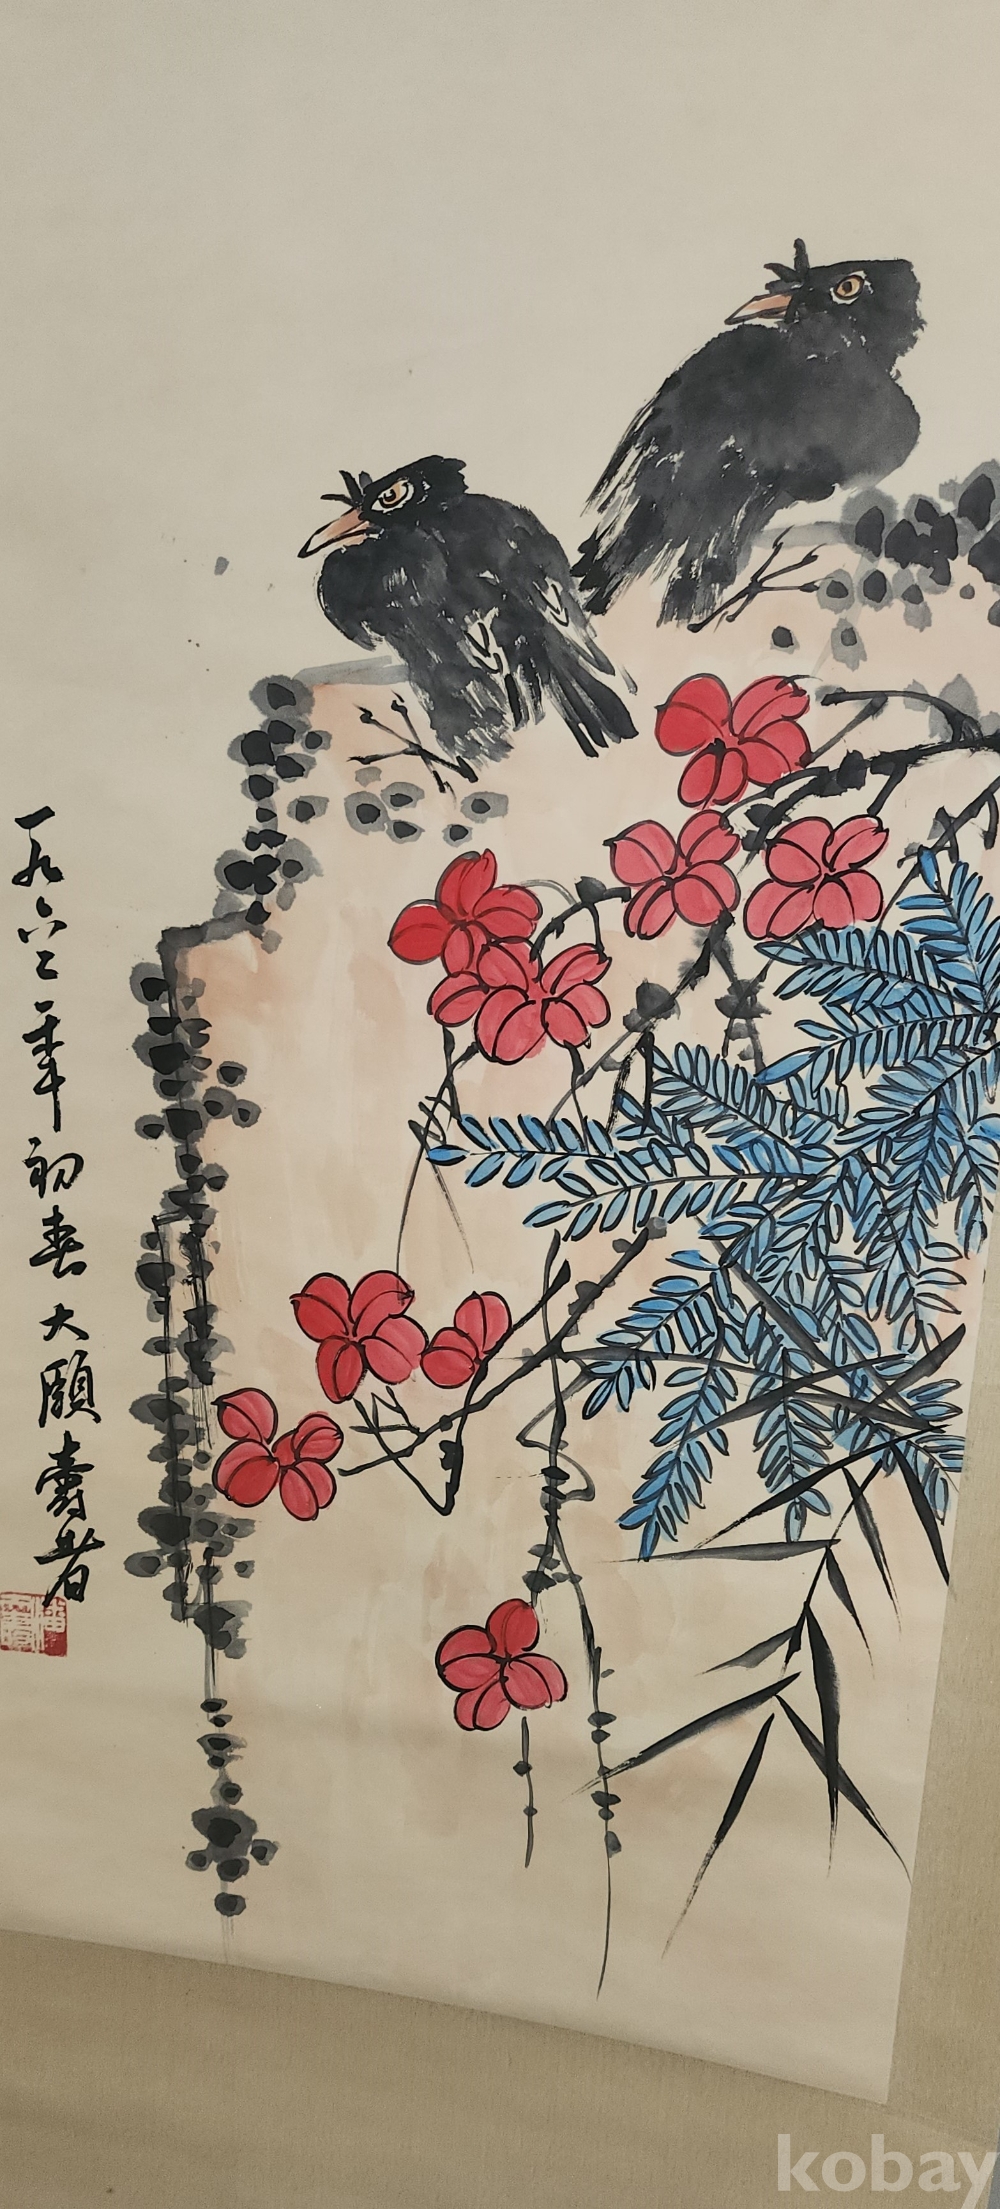 一九六二年初春大頤壽者
潘天壽
kobay